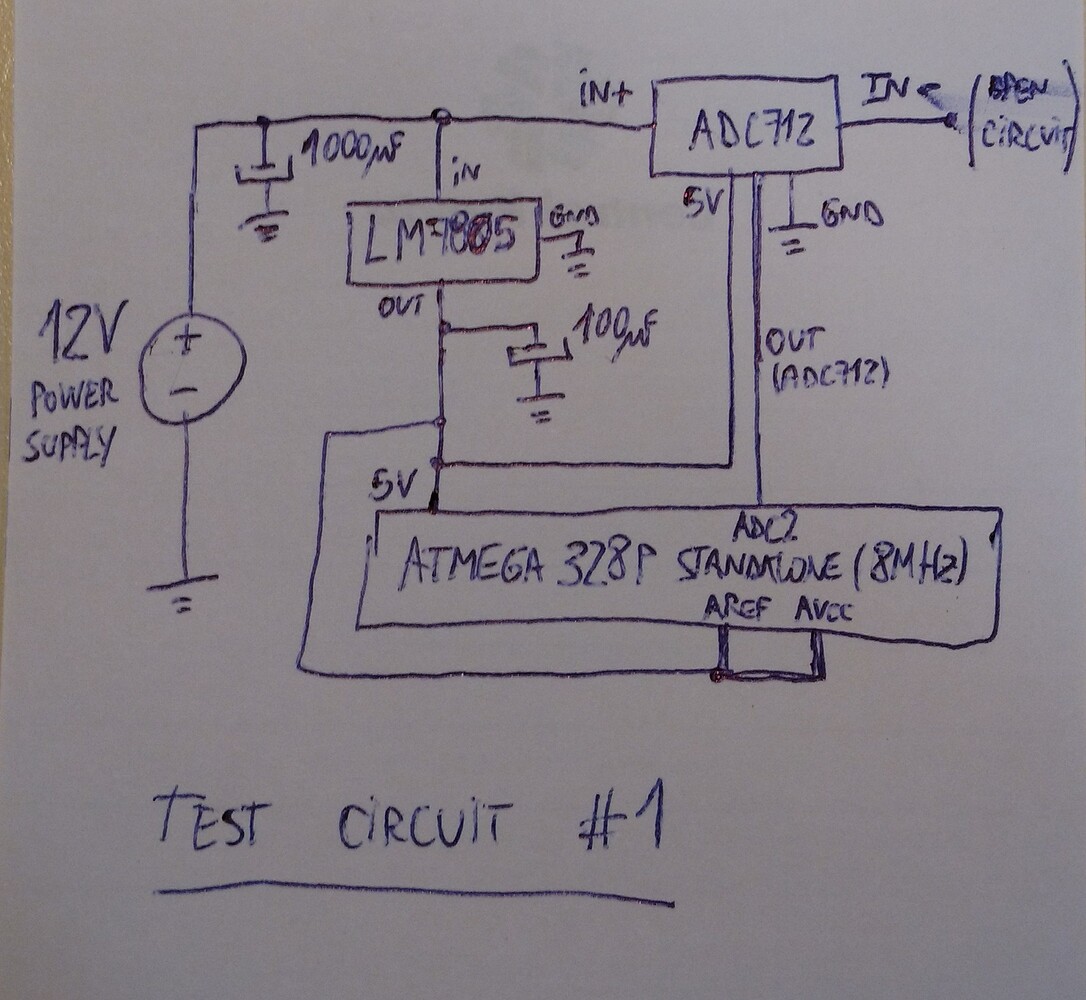 iN+
IN -
(OPEN
CIRCUIT)
ADC712
1000µF
iN
5V
GND
LM7805
GND
OUT
100µF
12V
POWER
SUPPLY
OUT
(ADC712)
5V
ADC2
ATMEGA 328P STANDALONE (8MHz)
AREF AVCC
TEST CIRCUIT #1